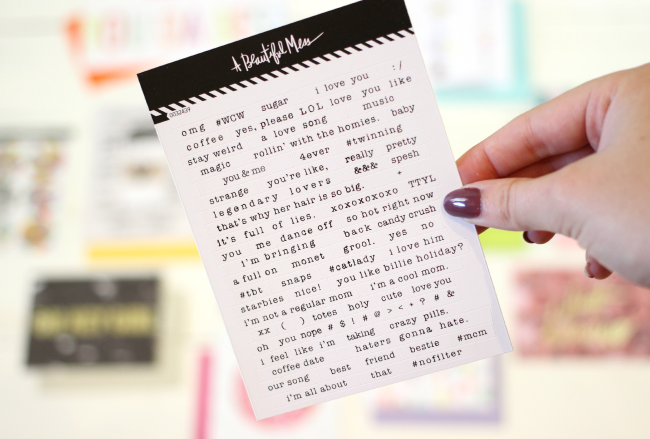 A Beautiful Mess
omg #WCW sugar i love you :/
coffee yes, please LOL love you like
stay weird a love song music
magic rollin' with the homies. baby
you & me 4ever #twinning
strange you're like, really pretty
legendary lovers &&& spesh
that's why her hair is so big. +
it's full of lies. xoxoxoxoxo TTYL
you me dance off so hot right now
i'm bringing back candy crush
a full on monet grool. yes no
#tbt snaps #catlady i love him
starbies nice! you like billie holiday?
i'm not a regular mom i'm a cool mom.
xx ( ) totes holy cute love you
oh you nope # $ ! # @ > < + ? # &
i feel like i'm taking crazy pills.
coffee date haters gonna hate.
our song best friend bestie #mom
i'm all about that #nofilter